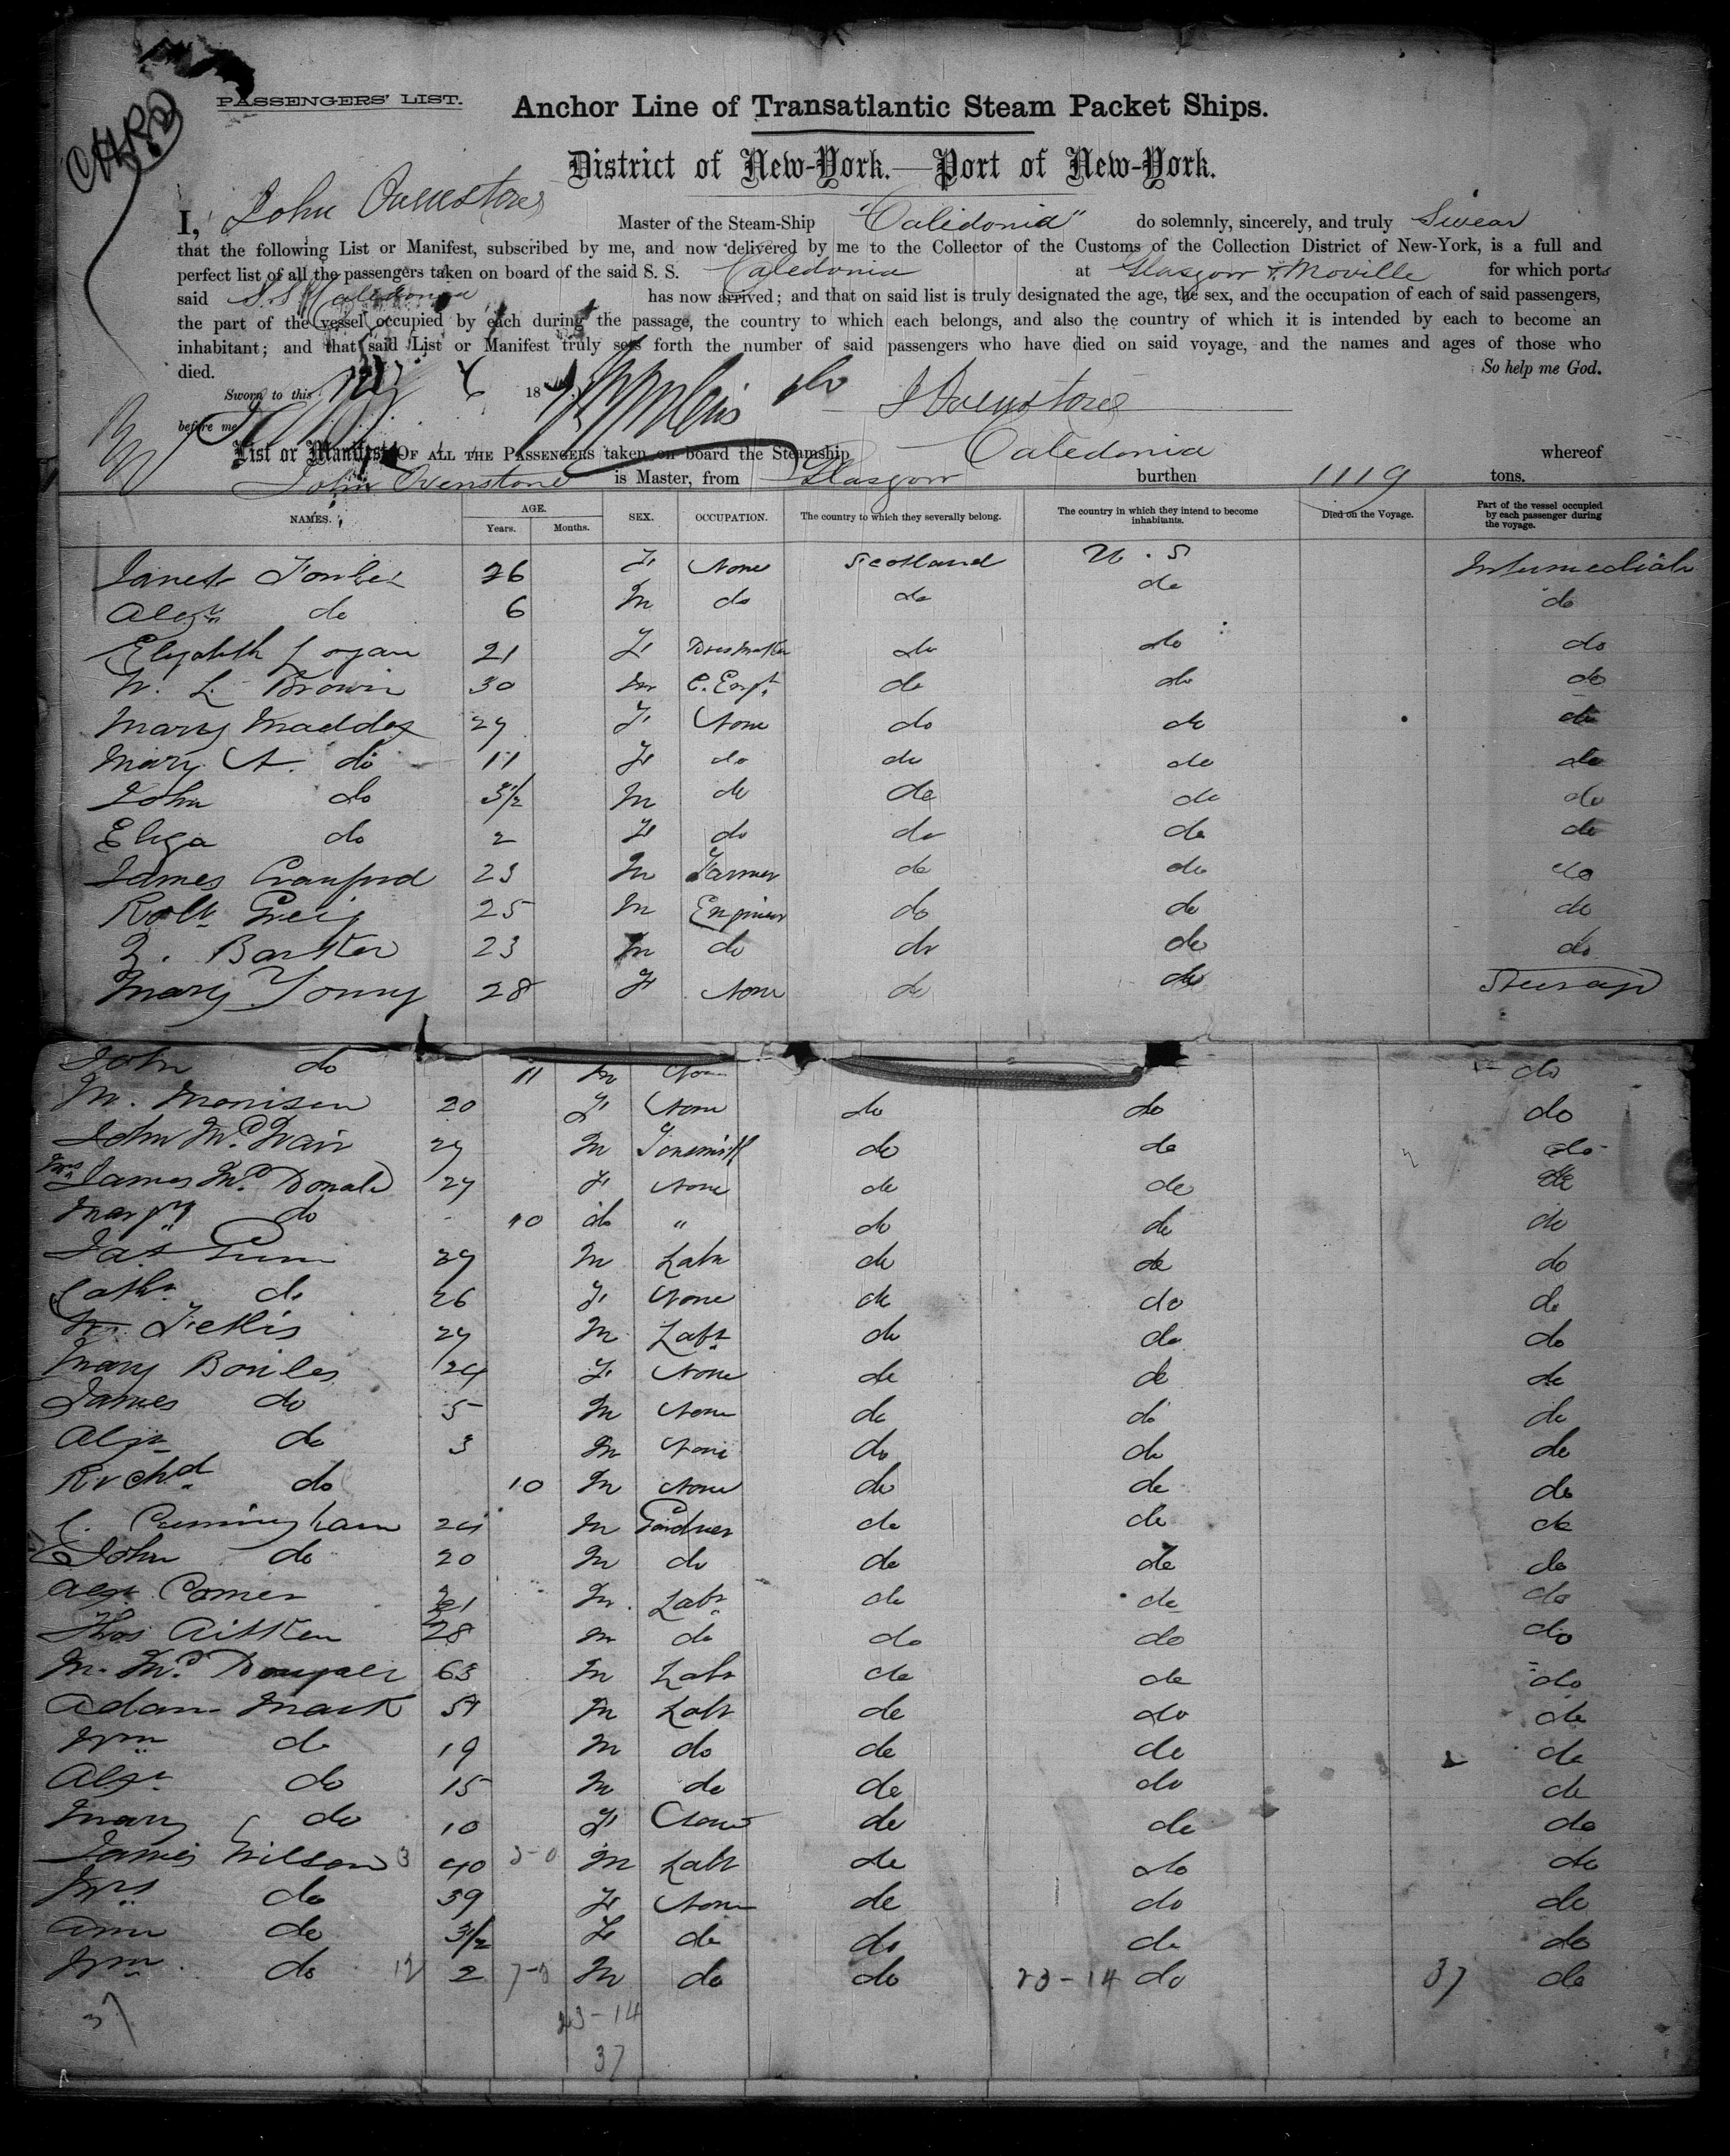 PASSENGERS' LIST.
Anchor Line of Transatlantic Steam Packet Ships.
District of New-York.—Port of New-York.
I, John Ovenstone Master of the Steam-Ship "Calidonia" do solemnly, sincerely, and truly Swear
that the following List or Manifest, subscribed by me, and now delivered by me to the Collector of the Customs of the Collection District of New-York, is a full and
perfect list of all the passengers taken on board of the said S. S. Caledonia at Glasgow & Moville for which ports
said S.S. Caledonia has now arrived; and that on said list is truly designated the age, the sex, and the occupation of each of said passengers,
the part of the vessel occupied by each during the passage, the country to which each belongs, and also the country of which it is intended by each to become an
inhabitant; and that said List or Manifest truly sets forth the number of said passengers who have died on said voyage, and the names and ages of those who
died. So help me God.
Sworn to this 6 18 J Ovenstone
before me
List or Manifest OF ALL THE PASSENGERS taken on board the Steamship Caledonia whereof
John Ovenstone is Master, from Glasgow burthen 1119 tons.
NAMES. AGE. Years. Months. SEX. OCCUPATION. The country to which they severally belong. The country in which they intend to become inhabitants. Died on the Voyage. Part of the vessel occupied by each passenger during the voyage.
Janet 26 F None Scotland U.S Intermediate
Alexr do 6 M do do do do
Elizabeth Logan 21 F Dressmaker do do do
W. L. Brown 30 M do do do
Mary Maddox 27 F None do do do
Mary A. do 11 F do do do do
John do 3½ M do do do do
Eliza do 2 F do do do do
James Crauford 23 M Farmer do do do
Robt Greig 25 M Engineer do do do
Barker 23 M do do do do
Mary Young 28 F None do do Steerage
John do 11 M None do
M. Morison 20 F None do do do
John McNair 27 M do do do
Mrs James McDonald 27 F None do do do
Margt do 10 do " do do do
Jas Gunn 29 M Labr do do do
Cathr do 26 F None do do do
27 M Labr do do do
Mary Bowles 24 F None do do do
James do 5 M None do do do
Alexr do 3 M None do do do
Richd do 10 M None do do do
C. Cunningham 24 M Gardner do do do
John do 20 M do do do do
Alexr 21 M Labr do do do
Thos Aitken 28 M do do do do
M. McDougall 63 M Labr do do do
Adam Mack 51 M Labr do do do
Wm do 19 M do do do do
Alexr do 15 M do do do do
Mary do 10 F None do do do
James Wilson 3 40 M Labr do do do
Mrs do 39 F None do do do
Ann do 3½ F do do do do
Wm do 12 2 M do do 23-14 do 37 do
37 23-14
37